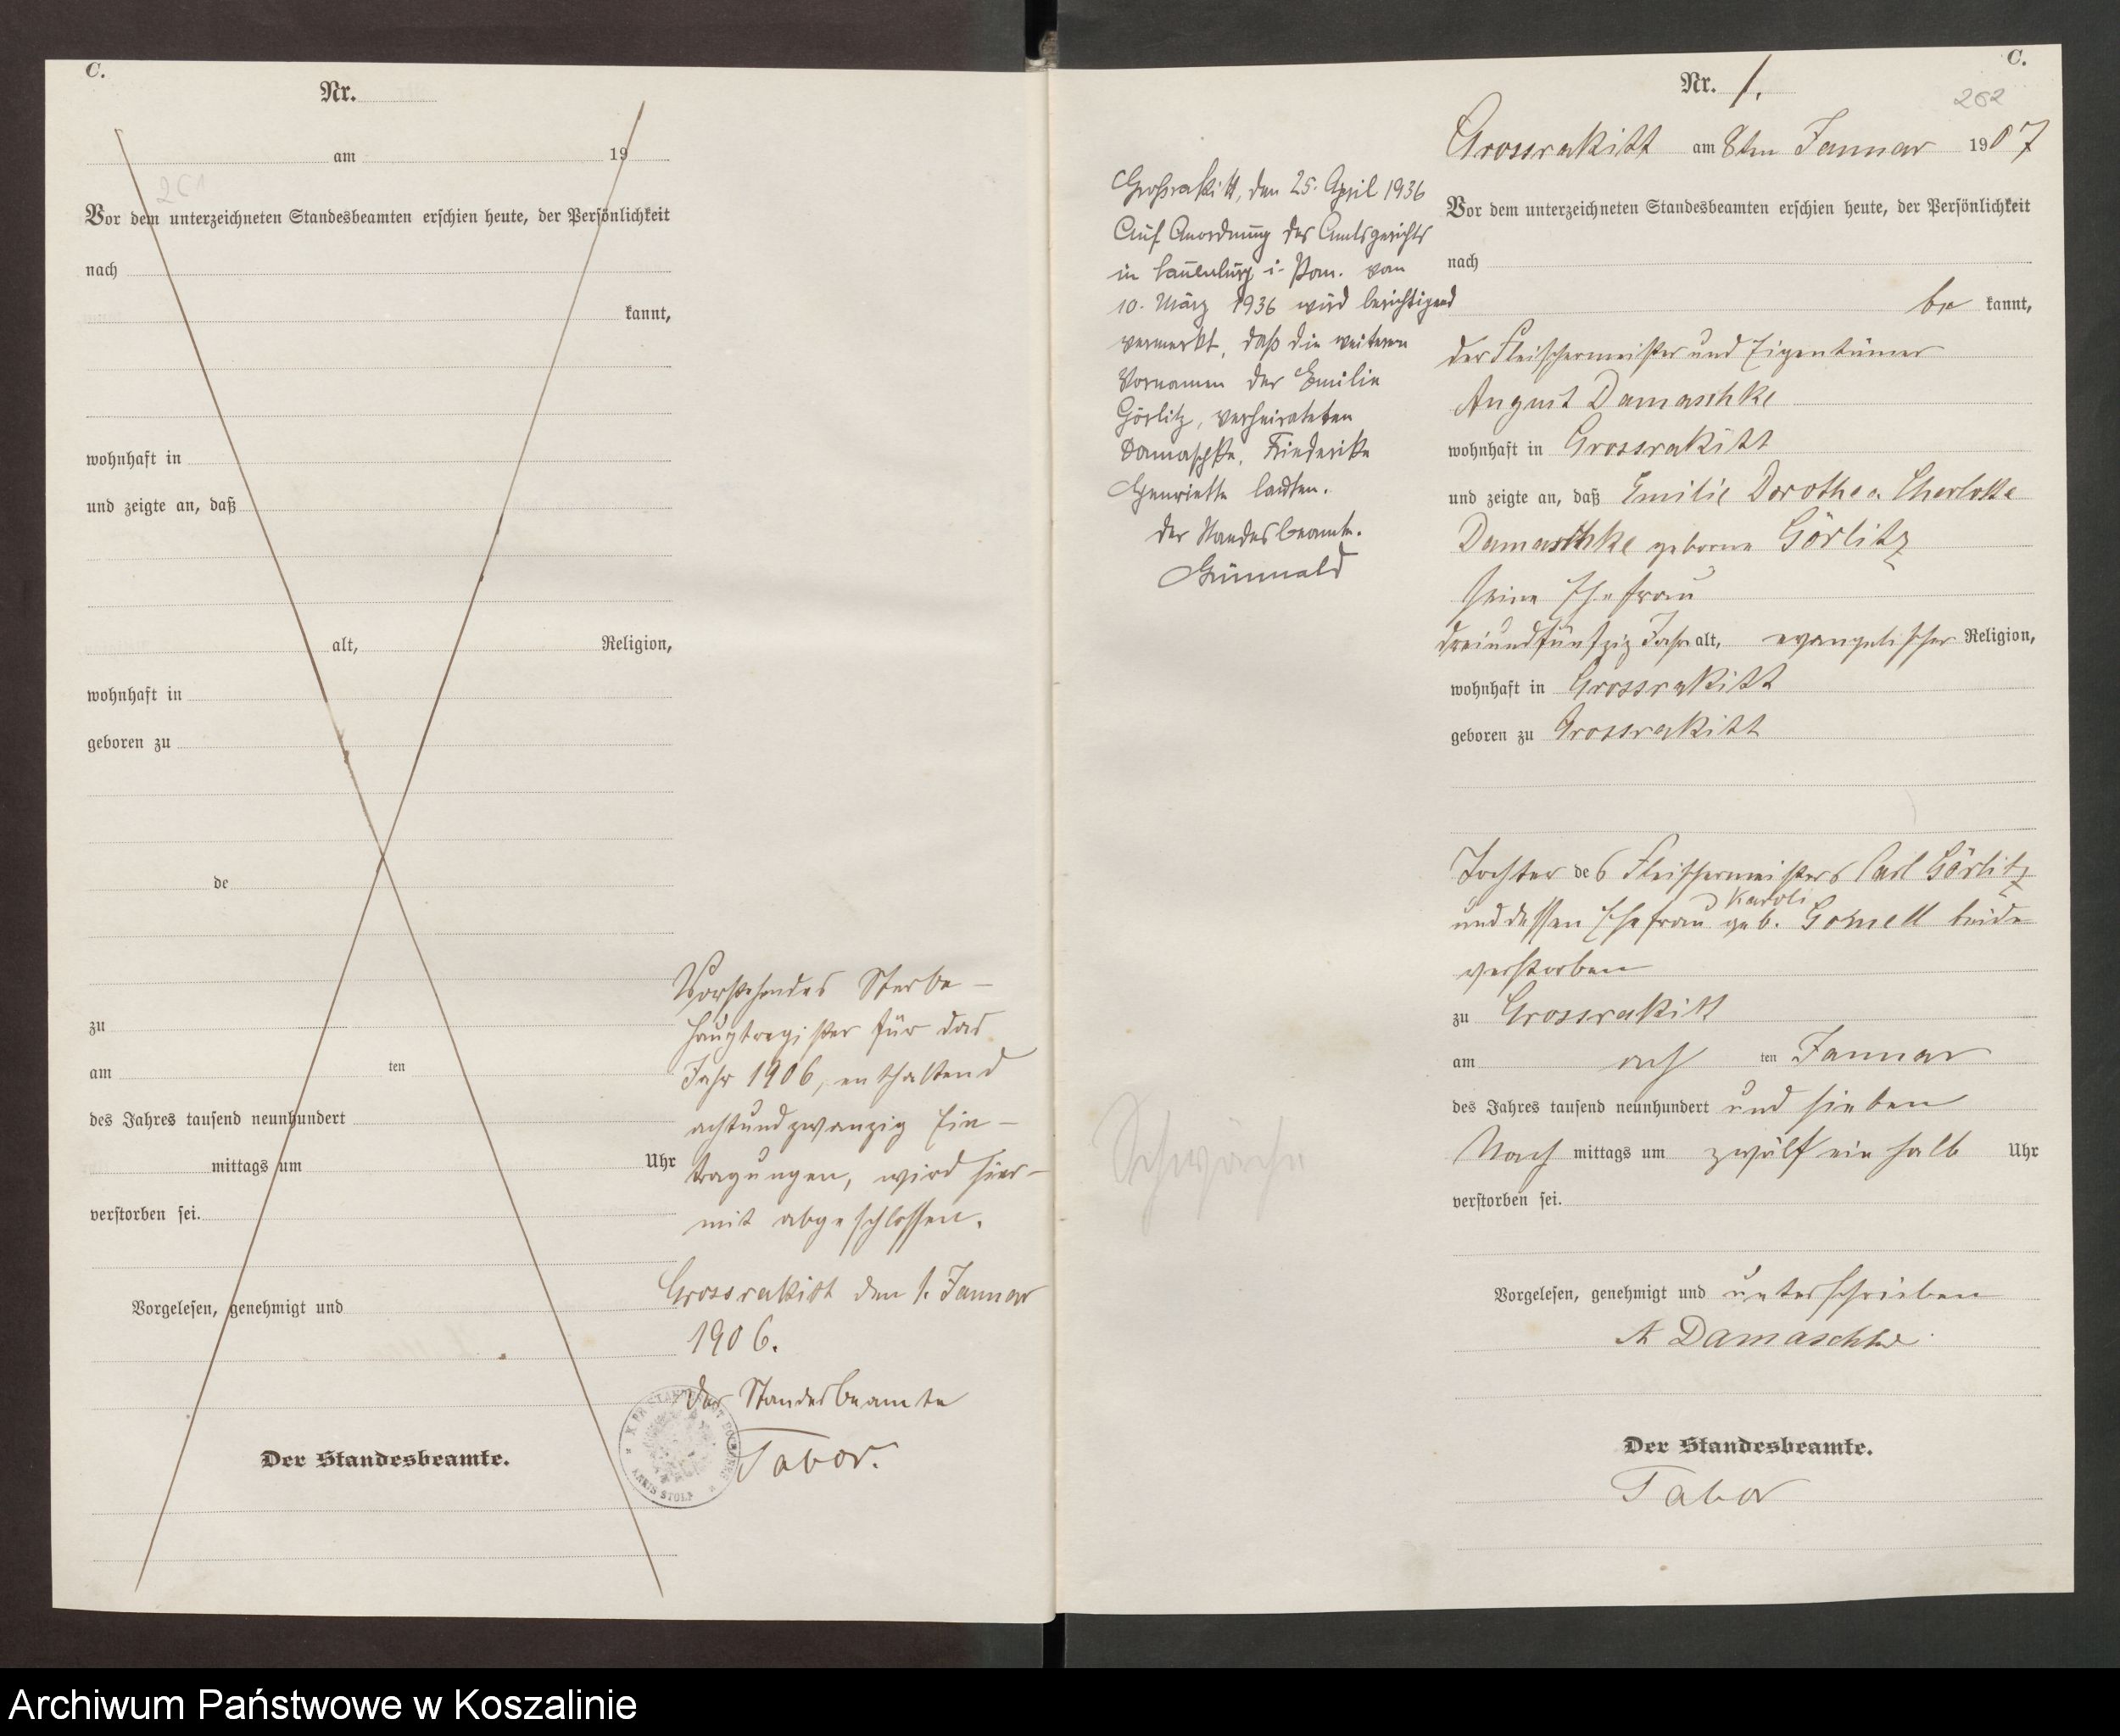 C.
Nr.
am 19
261
Vor dem unterzeichneten Standesbeamten erschien heute, der Persönlichkeit
nach
kannt,
wohnhaft in
und zeigte an, daß
alt, Religion,
wohnhaft in
geboren zu
de
zu
am ten
des Jahres tausend neunhundert
mittags um Uhr
verstorben sei.
Vorgelesen, genehmigt und
Der Standesbeamte.
Vorstehendes Sterbe-
hauptregister für das
Jahr 1906, enthaltend
achtundzwanzig Ein-
tragungen, wird hier-
mit abgeschlossen.
Grossrakitt den 1. Januar
1906.
Der Standesbeamte
Tabor.
C.
Nr. 1.
262
Grossrakitt am 8ten Januar 1907
Vor dem unterzeichneten Standesbeamten erschien heute, der Persönlichkeit
nach
be kannt,
der Fleischermeister und Eigentümer
August Damaschke
wohnhaft in Grossrakitt
und zeigte an, daß Emilie Dorothea Charlotte
Damaschke geborne Görlitz
seine Ehefrau
dreiundfünfzig Jahr alt, evangelischer Religion,
wohnhaft in Grossrakitt
geboren zu Grossrakitt
Tochter des Fleischermeisters Carl Görlitz
Karoli
und dessen Ehefrau geb. Gomell beide
verstorben
zu Grossrakitt
am acht ten Januar
des Jahres tausend neunhundert und sieben
Nach mittags um zwölf ein halb Uhr
verstorben sei.
Vorgelesen, genehmigt und unterschrieben
A Damaschke
Der Standesbeamte.
Tabor
Großrakitt, den 25. April 1936
Auf Anordnung des Amtsgerichts
in Lauenburg i. Pom. vom
10. März 1936 wird berichtigend
vermerkt, daß die weiteren
Vornamen der Emilie
Görlitz, verheirateten
Damaschke, Friederike
Henriette lauten.
Der Standesbeamte.
Grünwald
Schwäche
Archiwum Państwowe w Koszalinie